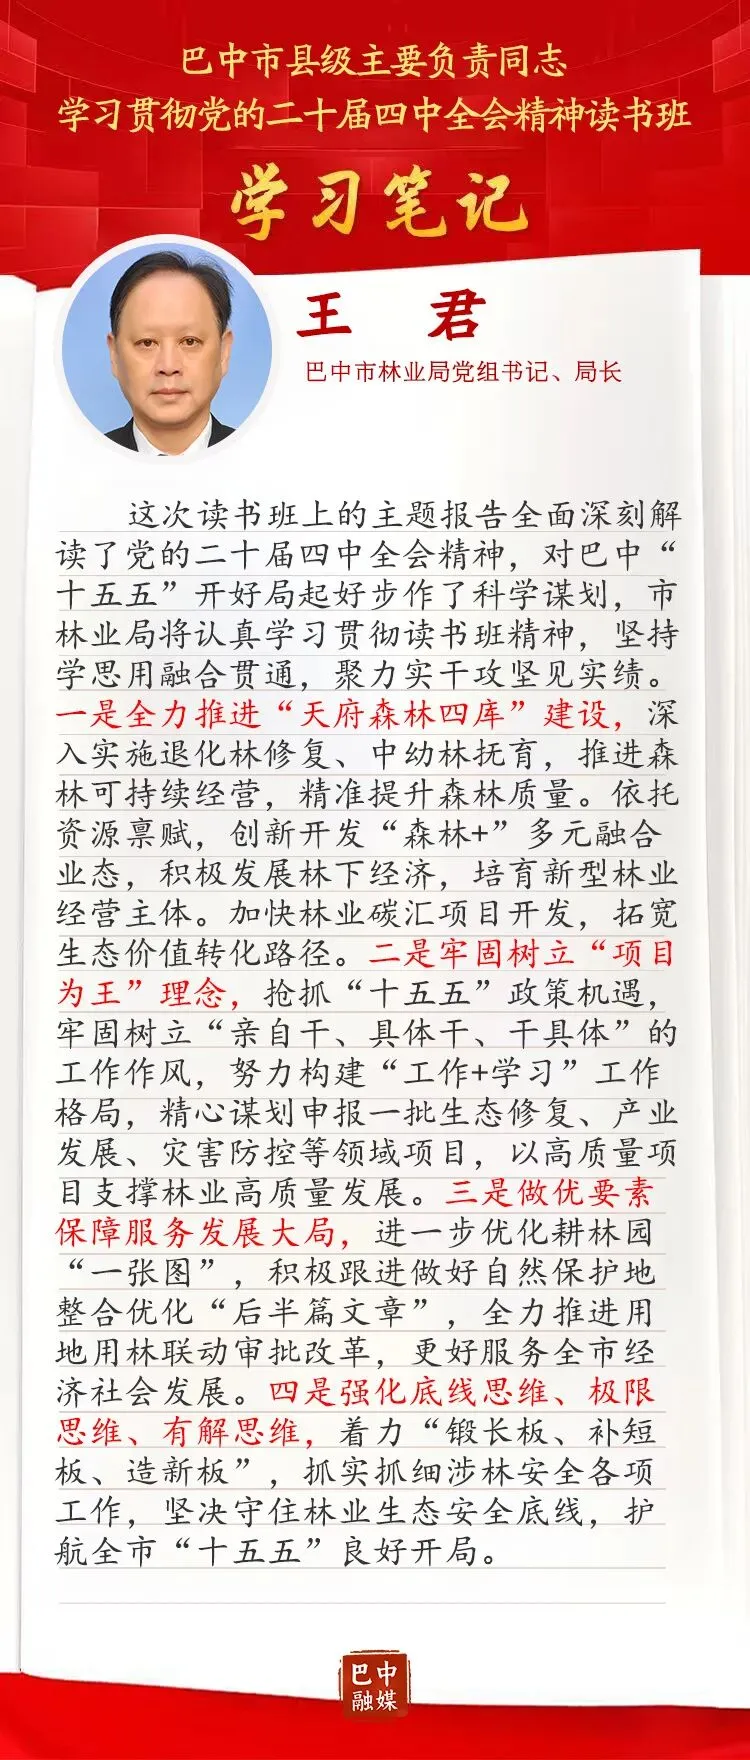 巴中市县级主要负责同志
学习贯彻党的二十届四中全会精神读书班
学习笔记
王 君
巴中市林业局党组书记、局长
这次读书班上的主题报告全面深刻解
读了党的二十届四中全会精神，对巴中“
十五五”开好局起好步作了科学谋划，市
林业局将认真学习贯彻读书班精神，坚持
学思用融合贯通，聚力实干攻坚见实绩。
一是全力推进“天府森林四库”建设，深
入实施退化林修复、中幼林抚育，推进森
林可持续经营，精准提升森林质量。依托
资源禀赋，创新开发“森林+”多元融合
业态，积极发展林下经济，培育新型林业
经营主体。加快林业碳汇项目开发，拓宽
生态价值转化路径。二是牢固树立“项目
为王”理念，抢抓“十五五”政策机遇，
牢固树立“亲自干、具体干、干具体”的
工作作风，努力构建“工作+学习”工作
格局，精心谋划申报一批生态修复、产业
发展、灾害防控等领域项目，以高质量项
目支撑林业高质量发展。三是做优要素
保障服务发展大局，进一步优化耕林园
“一张图”，积极跟进做好自然保护地
整合优化“后半篇文章”，全力推进用
地用林联动审批改革，更好服务全市经
济社会发展。四是强化底线思维、极限
思维、有解思维，着力“锻长板、补短
板、造新板”，抓实抓细涉林安全各项
工作，坚决守住林业生态安全底线，护
航全市“十五五”良好开局。
巴中
融媒